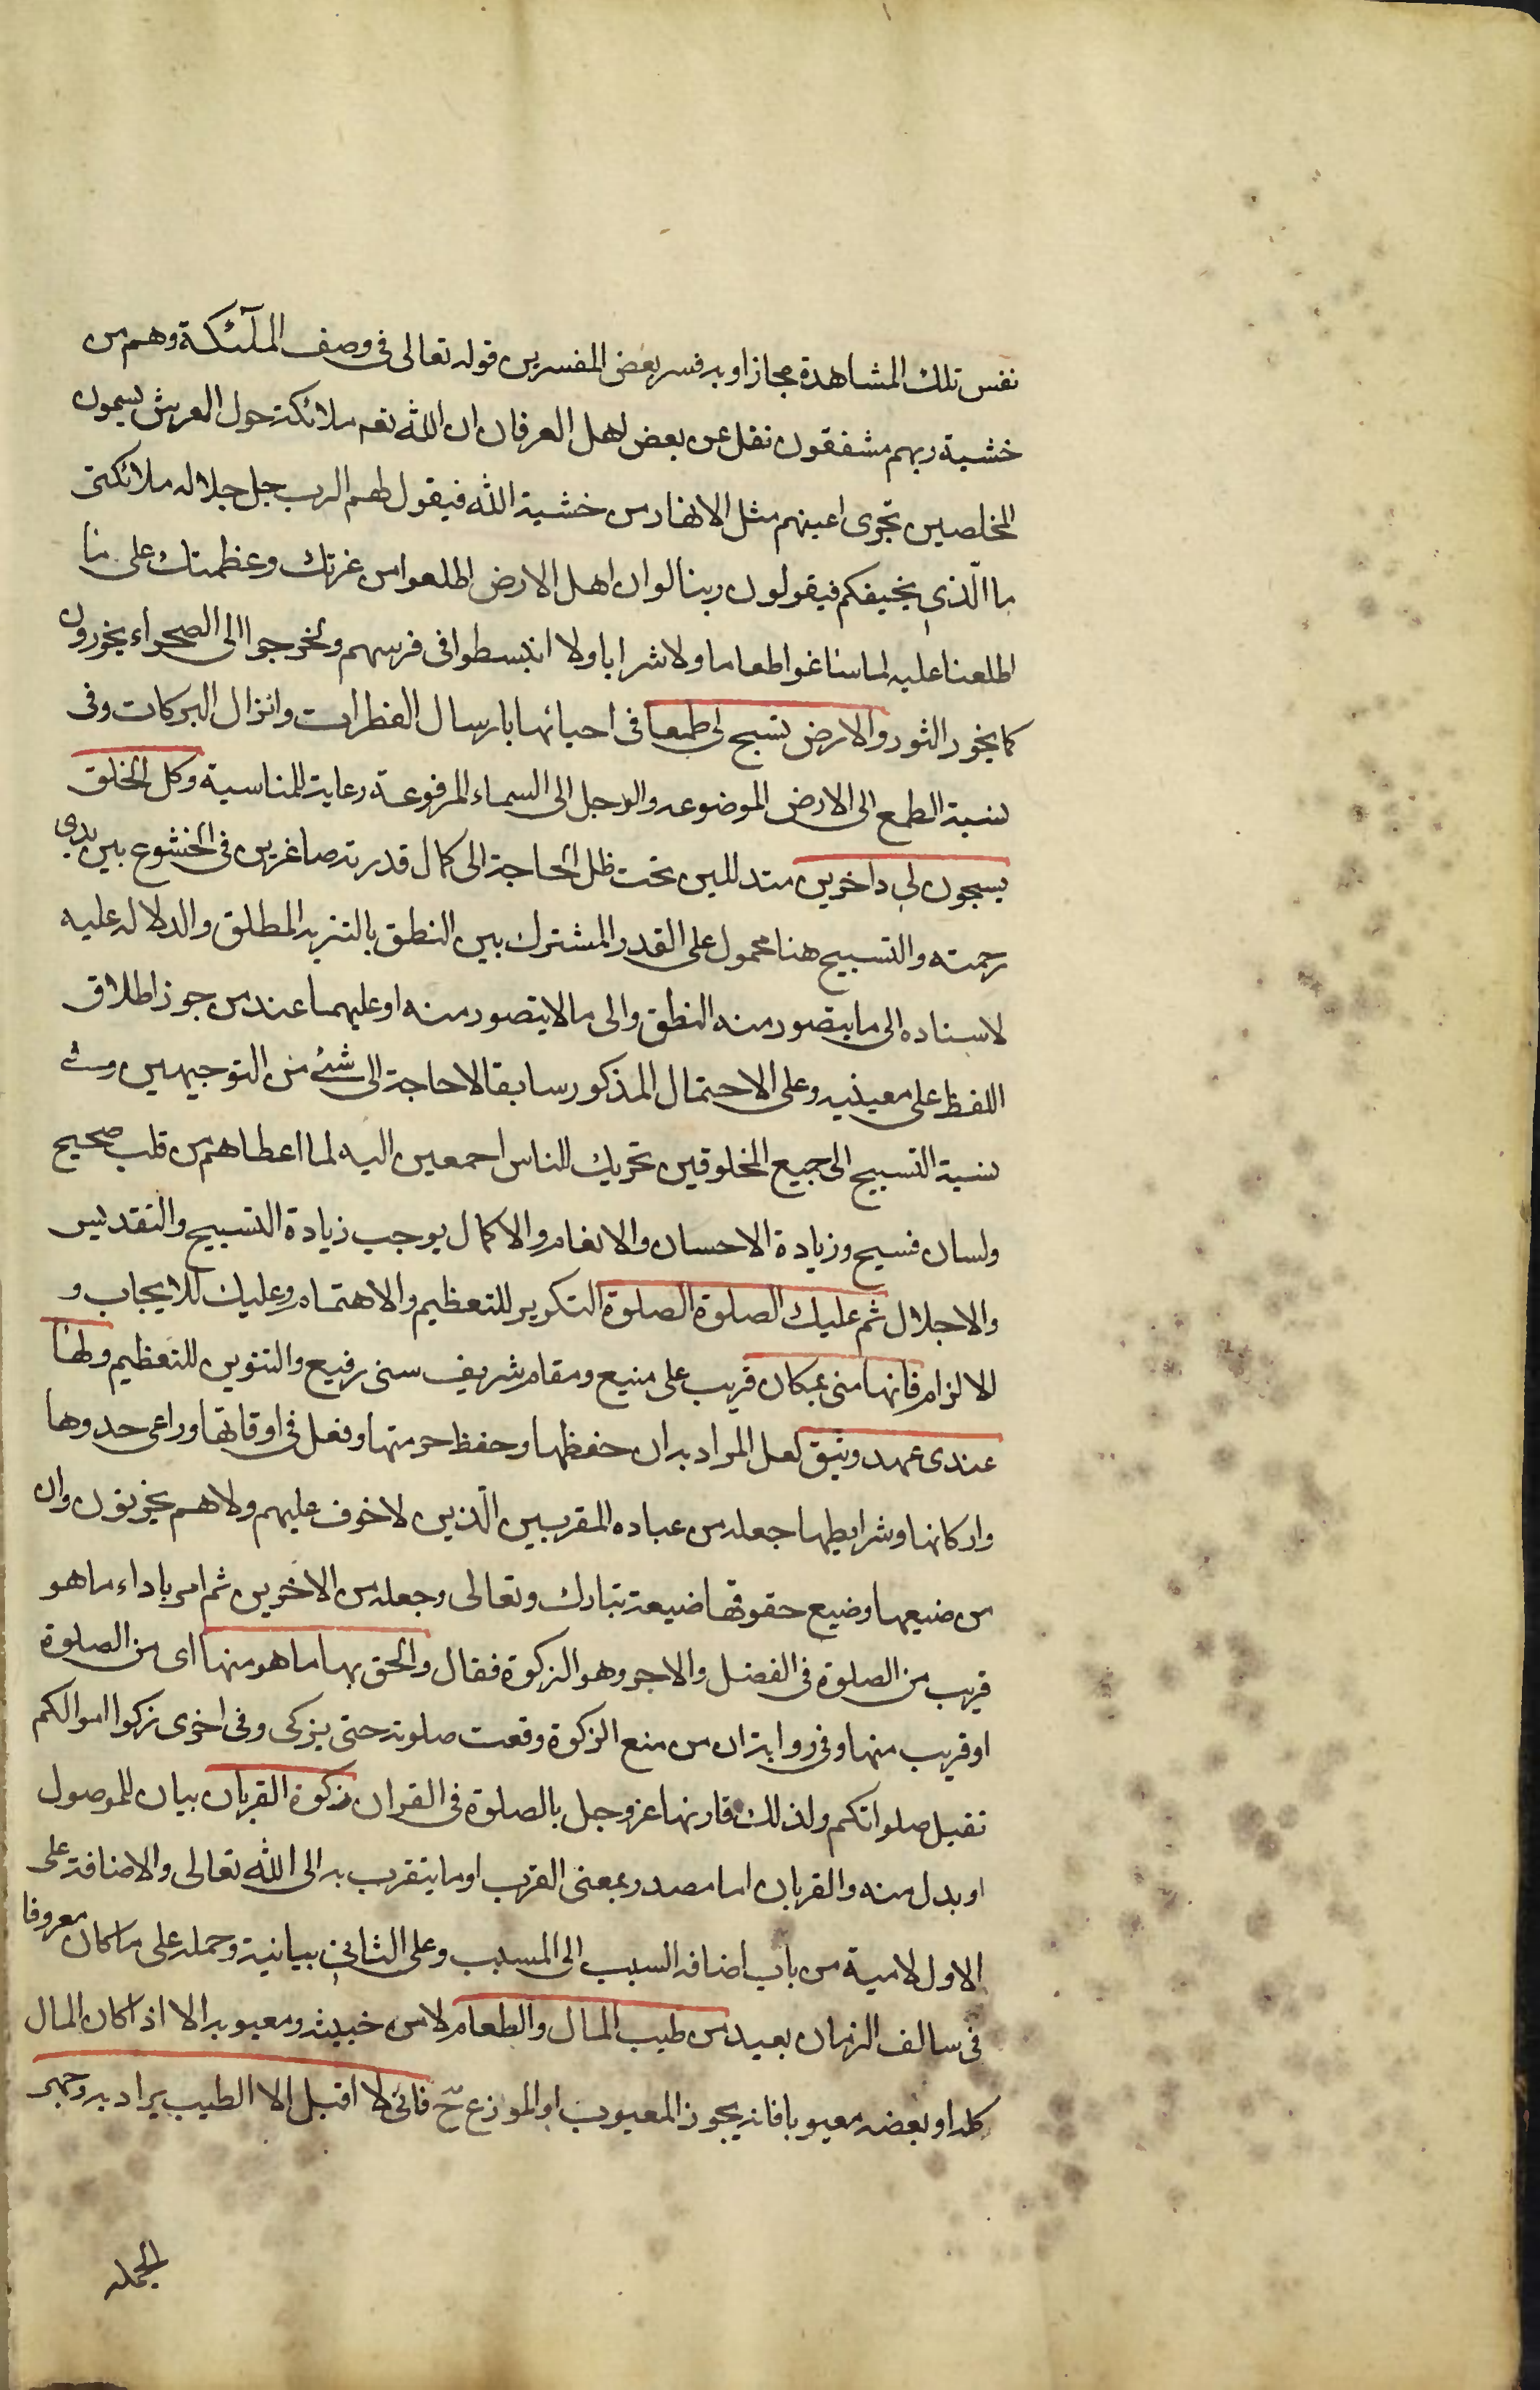 نفس تلك المشاهدة مجازا وبه فسر بعض المفسرين قوله تعالى فى وصف الملٓئكة وهم من
خشية ربهم مشفقون نقل عن بعض اهل العرفان ان الله تعم ملائكة حول العرش يسمون
المخلصين تجرى اعينهم مثل الانهار من خشية الله فيقول لهم الرب جل جلاله ملائكتى
ما الّذى يخيفكم فيقولون ربنا لو ان اهل الارض اطلعوا من عزتك وعظمتك على ما
اطلعنا عليه لما ساغوا طعاما ولا شرابا ولا انبسطوا فى فرشهم ولخرجوا الى الصحراء يخورون
كما يخور الثور والارض تسبح لى طمعا فى احيائها بارسال القطرات وانزال البركات وفى
نسبة الطمع الى الارض الموضوعه والوجل الى السماء المرفوعة رعاية للمناسبة وكل الخلق
يسبحون لى داخرين متذللين تحت ظل الحاجة الى كمال قدرته صاغرين فى الخشوع بين يدى
رحمته والتسبيح هنا محمول على القدر المشترك بين النطق بالتنزيه المطلق والدلاله عليه
لاسناده الى ما يتصور منه النطق والى ما لا يتصور منه او عليهما عند من جوز اطلاق
اللفظ على معنييه وعلى الاحتمال المذكور سابقا لا حاجة الى شئ من التوجيهين وفى
نسبة التسبيح الى جميع المخلوقين تحريك للناس اجمعين اليه لما اعطاهم من قلب صحيح
ولسان فسيح وزيادة الاحسان والانعام والاكمال يوجب زيادة التسبيح والتقديس
والاجلال ثم عليك الصلوة الصلوة التكرير للتعظيم والاهتمام وعليك للايجاب و
الالزام فانها منى بمكان قريب على منيع ومقام شريف سنى رفيع والتنوين للتعظيم ولها
عندى عهد وثيق لعل المراد به ان حفظها وحفظ حرمتها وفعل فى اوقاتها وراعى حدودها
واركانها وشرايطها جعله من عباده المقربين الّذين لا خوف عليهم ولا هم يحزنون وان
من ضيعها وضيع حقوقها ضيعه تبارك وتعالى وجعله من الاخرين ثم امر باداء ما هو
قريب من الصلوة فى الفضل والاجر وهو الزكوة فقال والحق بها ما هو منها اى من الصلوة
او قريب منها وفى رواية ان من منع الزكوة وقفت صلوته حتى يزكى وفى اخرى زكوا اموالكم
تقبل صلواتكم ولذلك قارنها عز وجل بالصلوة فى القران زكوة القربان بيان للموصول
او بدل منه والقربان اما مصدر بمعنى القرب او ما يتقرب به الى الله تعالى والاضافة على
الاول لامية من باب اضافه السبب الى المسبب وعلى الثانى بيانية وحمله على ما كان معروفا
فى سالف الزمان بعيد من طيب المال والطعام لا من خبيثه ومعيوبه الا اذا كان المال
كله او بعضه معيوبا فانه يجوز المعيوب او الموزع ح فانى لا اقبل الا الطيب يراد به وجهى
الجمله